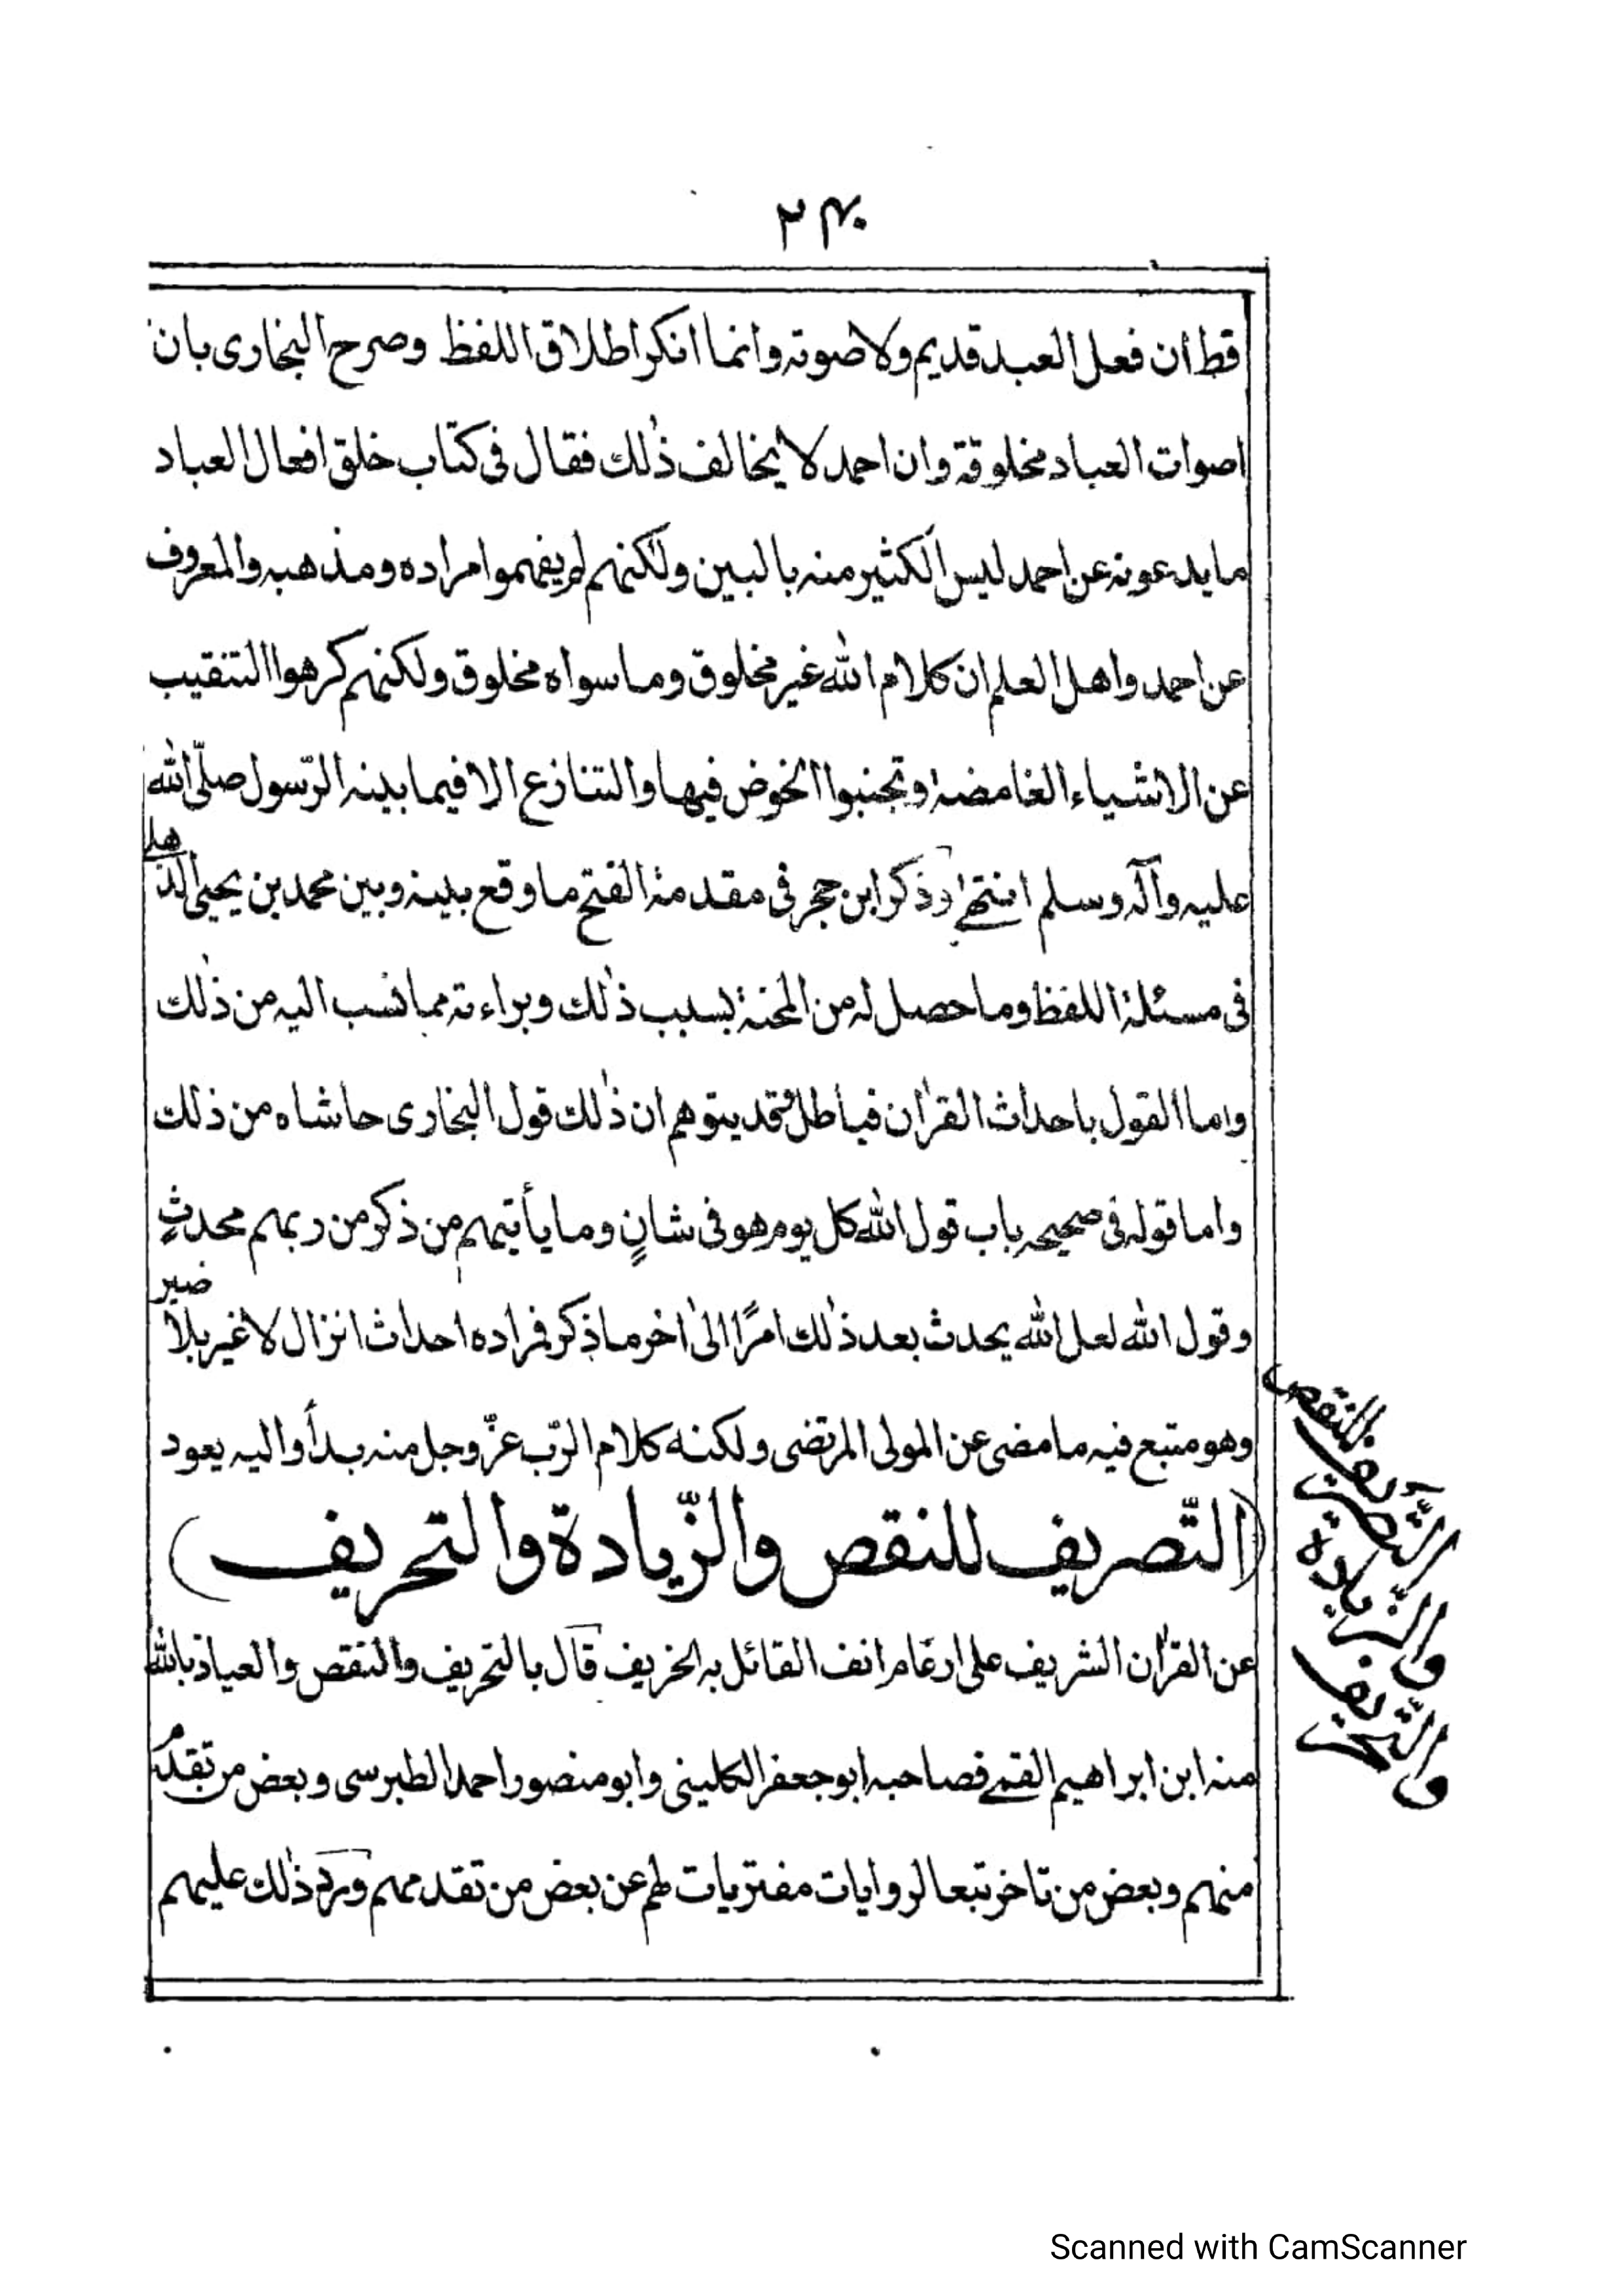 ۲۴۰
قط ان فعل العبد قديم ولا صوته وانما انكر اطلاق اللفظ وصرح البخارى بان
اصوات العباد مخلوقة وان احمد لا يخالف ذٰلك فقال فى كتاب خلق افعال العباد
ما يدعونه عن احمد ليس الكثير منه بالبين ولكنهم لم يفهموا مراده ومذهبه والمعروف
عن احمد واهل العلم ان كلام الله غير مخلوق وما سواه مخلوق ولكنهم كرهوا التنقيب
عن الاشياء الغامضة وتجنبوا الخوض فيها والتنازع الا فيما بينه الرّسول صلّى الله
عليه وآله وسلم انتهى وذكر ابن حجر فى مقدمة الفتح ما وقع بينه وبين محمد بن يحيى الذهلى
فى مسئلة اللفظ وما حصل له من المحنة بسبب ذٰلك وبراءته مما نسب اليه من ذٰلك
واما القول باحداث القرٰان فباطل قد يتوهم ان ذٰلك قول البخارى حاشاه من ذٰلك
واما قوله فى صحيحه باب قول الله كل يوم هو فى شانٍ وما يأتيهم من ذكر من ربهم محدثٍ
وقول الله لعل الله يحدث بعد ذٰلك امرًا الىٰ اخر ما ذكر فمراده احداث انزال لا غير بلا ضير
وهو متبع فيه ما مضى عن المولى المرتضى ولكنه كلام الرّب عزّ وجل منه بدأ واليه يعود
(التّصريف للنقص والزّيادة والتحريف)
عن القرٰان الشريف على ارغام انف القائل به الخريف قال بالتحريف والنقص والعياذ بالله
منه ابن ابراهيم القمى فصاحبه ابو جعفر الكلينى وابو منصور احمد الطبرسى وبعض من تقدم
منهم وبعض من تاخر تبعا لروايات مفتريات لهم عن بعض من تقدمهم ورد ذٰلك عليهم
التّصريف للنقص
والزّيادة
والتّحريف
Scanned with CamScanner